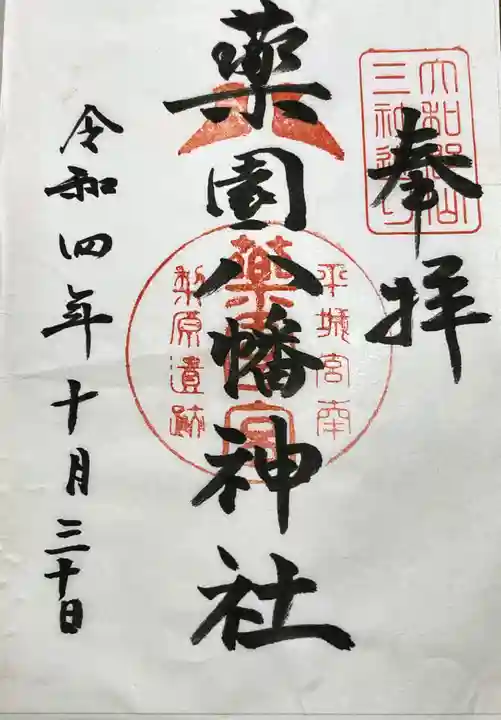 奉拝
大和郡山
三神道り
薬園八幡神社
平城宮南
薬園宮
梨原遺跡
令和四年十月三十日